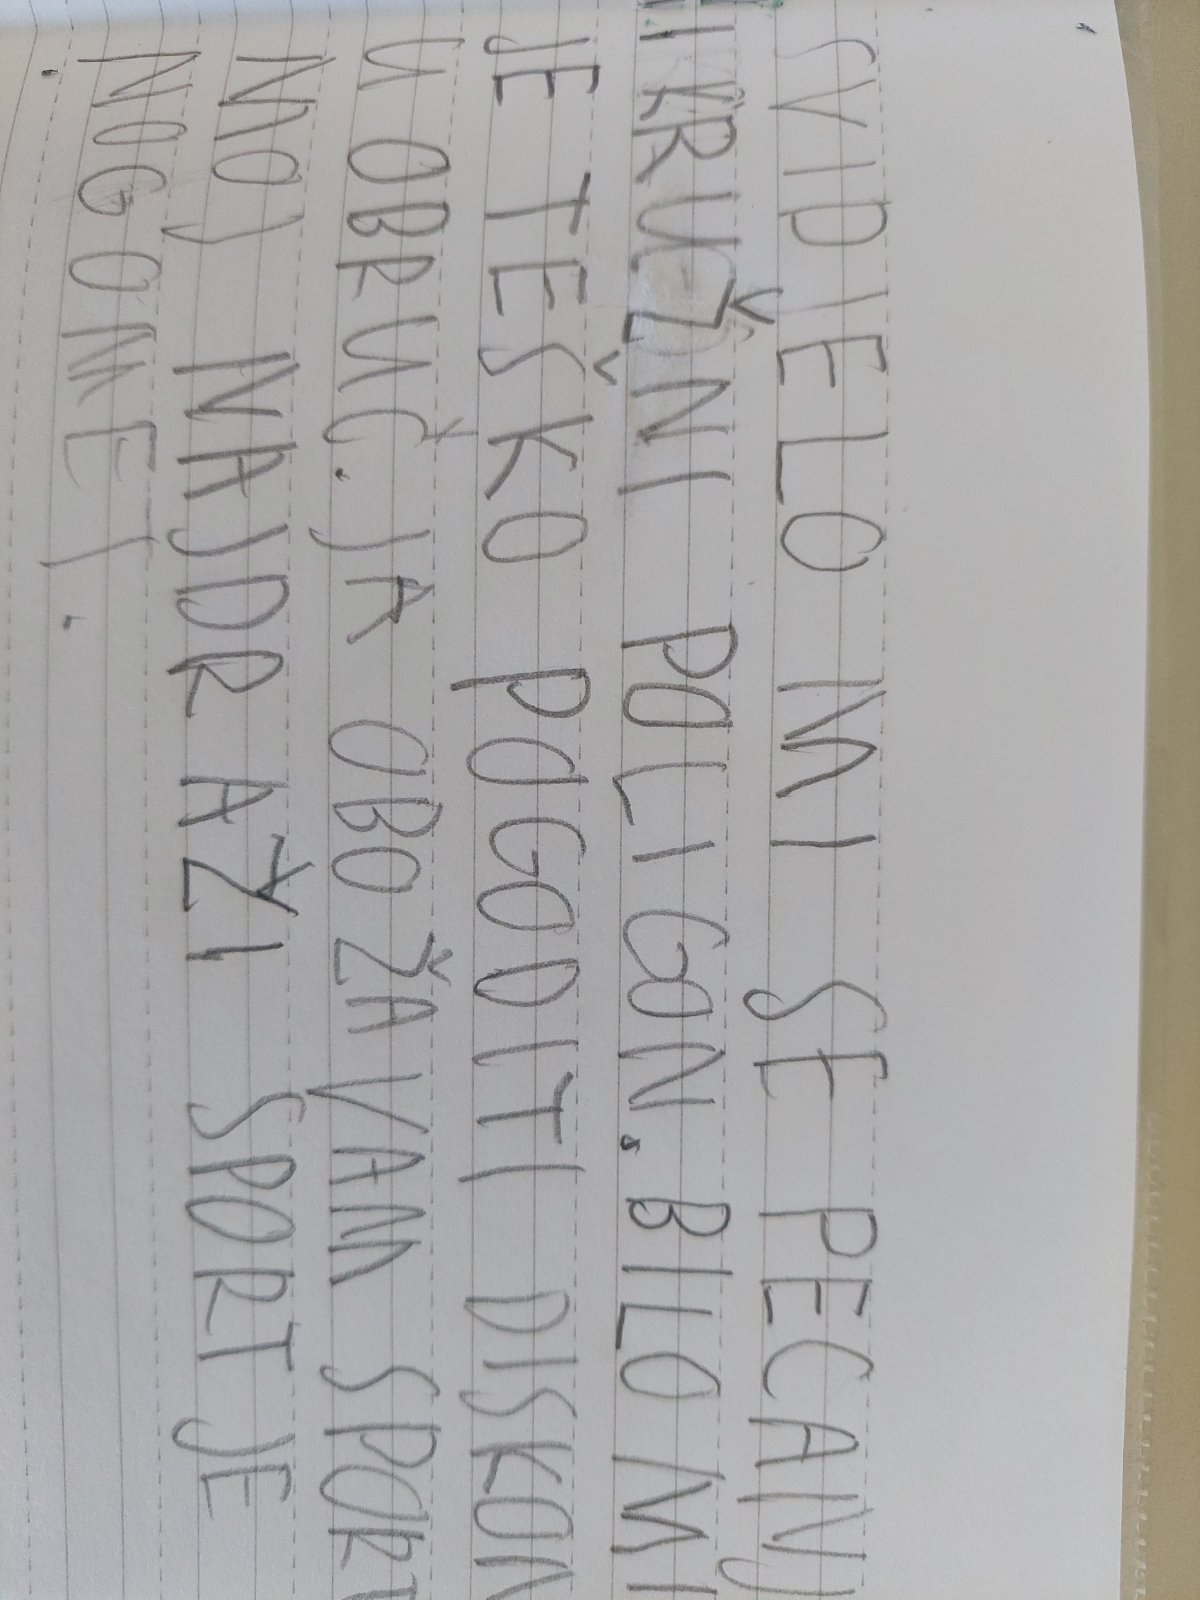 SVIDJELO MI SE PECANJ
I KRUŽNI POLIGON. BILO MI
JE TEŠKO POGODITI DISKOM
U OBRUČ. JA OBOŽAVAM SPORT
MOJ NAJDRAŽI SPORT JE
NOGOMET.